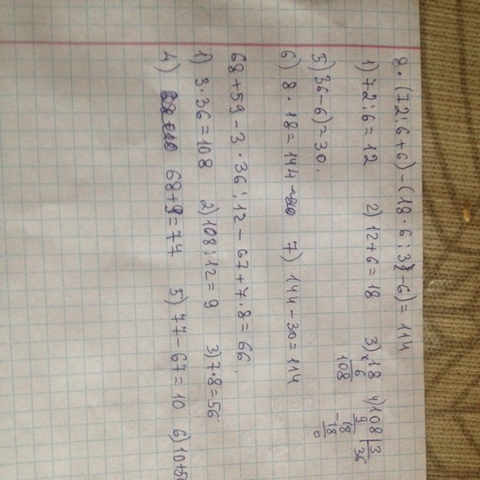 8 · (72 : 6 + 6) - (18 · 6 : 3 - 6) = 114
1) 72 : 6 = 12 2) 12 + 6 = 18 3) 18 4) 108 | 3
× 6 9 36
108 -18
18
0
5) 36 - 6) = 30.
6) 8 · 18 = 144 7) 144 - 30 = 114
68 + 59 - 3 · 36 : 12 - 67 + 7 · 8 = 66
1) 3 · 36 = 108 2) 108 : 12 = 9 3) 7 · 8 = 56
4) 68 + 9 = 74 5) 77 - 67 = 10 6) 10 + 5